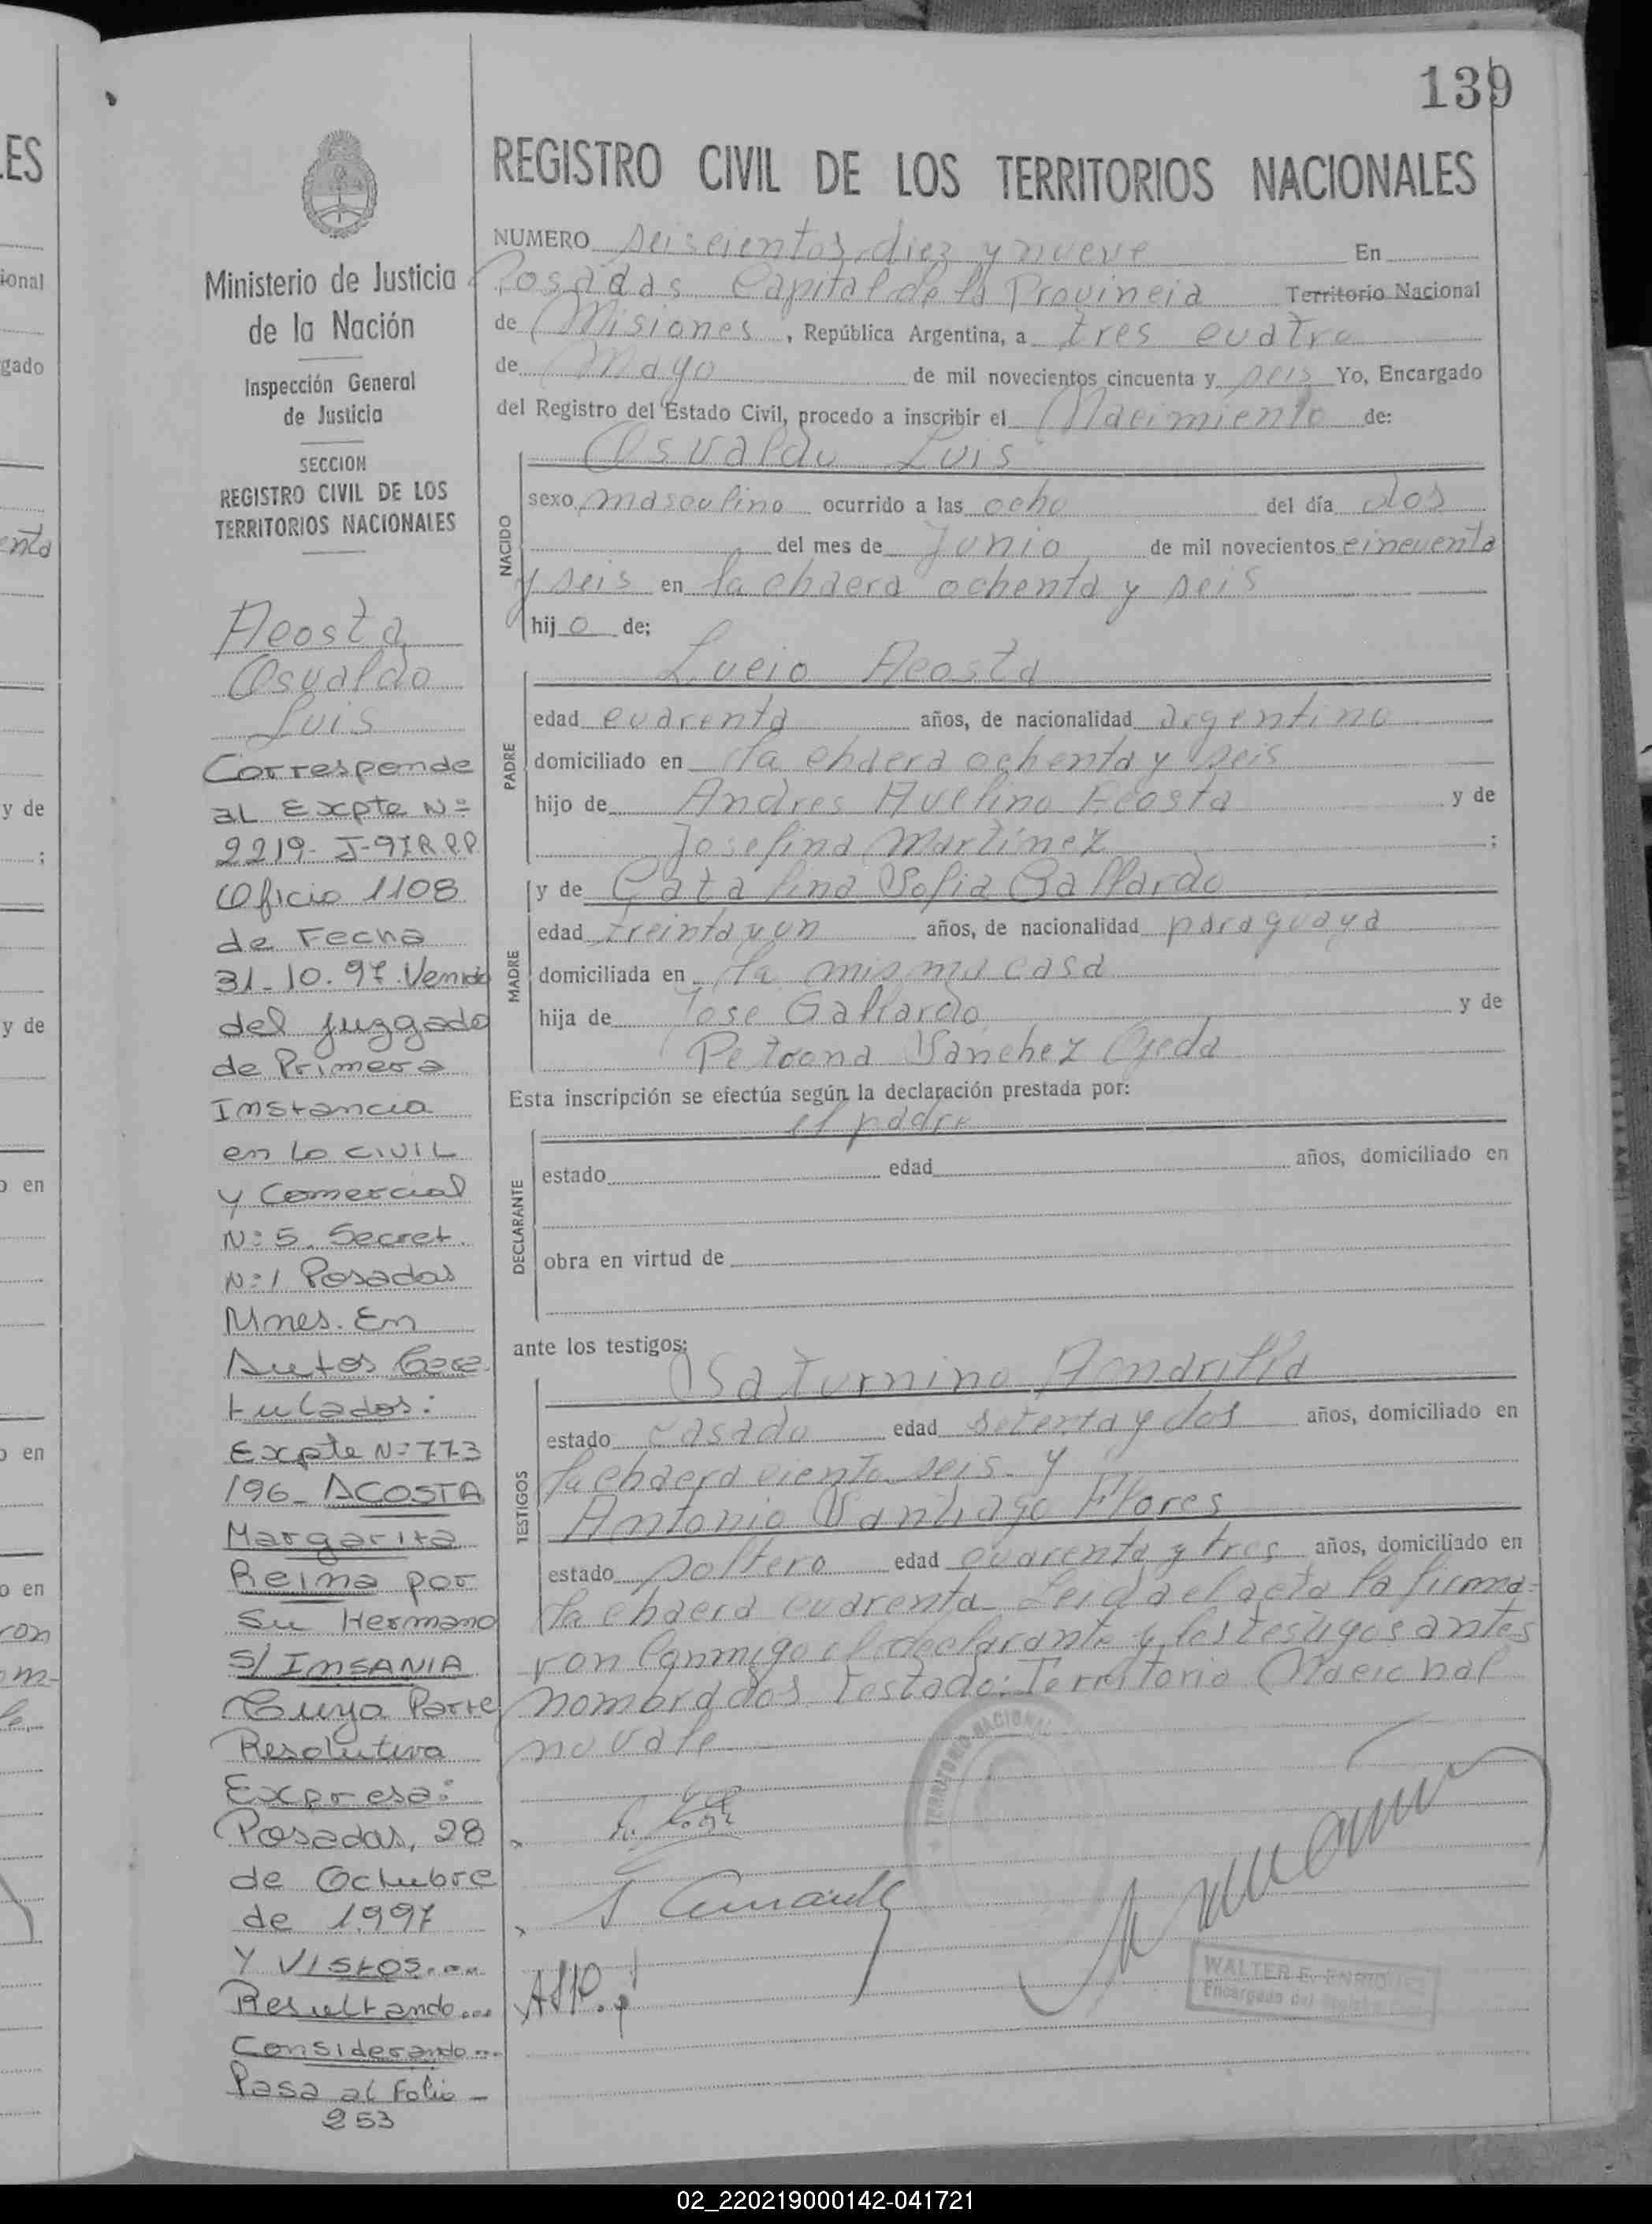 139
REGISTRO CIVIL DE LOS TERRITORIOS NACIONALES
Ministerio de Justicia
de la Nación
Inspección General
de Justicia
SECCION
REGISTRO CIVIL DE LOS
TERRITORIOS NACIONALES
Acosta
Osvaldo
Luis
Corresponde
al Expte Nº
2219- J-97R.P.P.
Oficio 1108
de Fecha
31-10.97.Venido
del Juzgado
de Primera
Instancia
en Lo CIVIL
y Comercial
Nº 5. Secret.
Nº 1 Posadas
Mnes. En
Autos Cara
tulados:
Expte Nº 773
/96_ ACOSTA
Margarita
Reina por
Su Hermano
S/ INSANIA
Cuya Parte
Resolutiva
Expresa:
Posadas, 28
de Octubre
de 1.997
Y VISTOS....
Resultando...
Considerando...
Pasa al Folio -
253
NUMERO seiscientos diez y nueve En
Posadas Capital de la Provincia Territorio Nacional
de Misiones, República Argentina, a tres cuatro
de Mayo de mil novecientos cincuenta y seis Yo, Encargado
del Registro del Estado Civil, procedo a inscribir el Nacimiento de:
Osvaldo Luis
NACIDO
sexo masculino ocurrido a las ocho del día dos
del mes de Junio de mil novecientos cincuenta
y seis en la chacra ochenta y seis
hij o de;
Lucio Acosta
PADRE
edad cuarenta años, de nacionalidad argentino
domiciliado en la chacra ochenta y seis
hijo de Andres Avelino Acosta y de
Josefina Martínez ;
y de Catalina Sofia Gallardo
MADRE
edad treinta y un años, de nacionalidad paraguaya
domiciliada en la misma casa
hija de Jose Gallardo y de
Petrona Sanchez Ojeda
Esta inscripción se efectúa según la declaración prestada por:
el padre
DECLARANTE
estado edad años, domiciliado en
obra en virtud de
ante los testigos:
Saturnino
TESTIGOS
estado casado edad setenta y dos años, domiciliado en
la chacra ciento seis y
Antonio Santiago Flores
estado soltero edad cuarenta y tres años, domiciliado en
la chacra cuarenta Leida el acta la firma=
ron conmigo el declarante y los testigos antes
nombrados Testado: Territorio Nacional
no vale
TERRITORIO NACIONAL
WALTER E. ENRIQUEZ
Encargado del Registro Civil
02_220219000142-041721